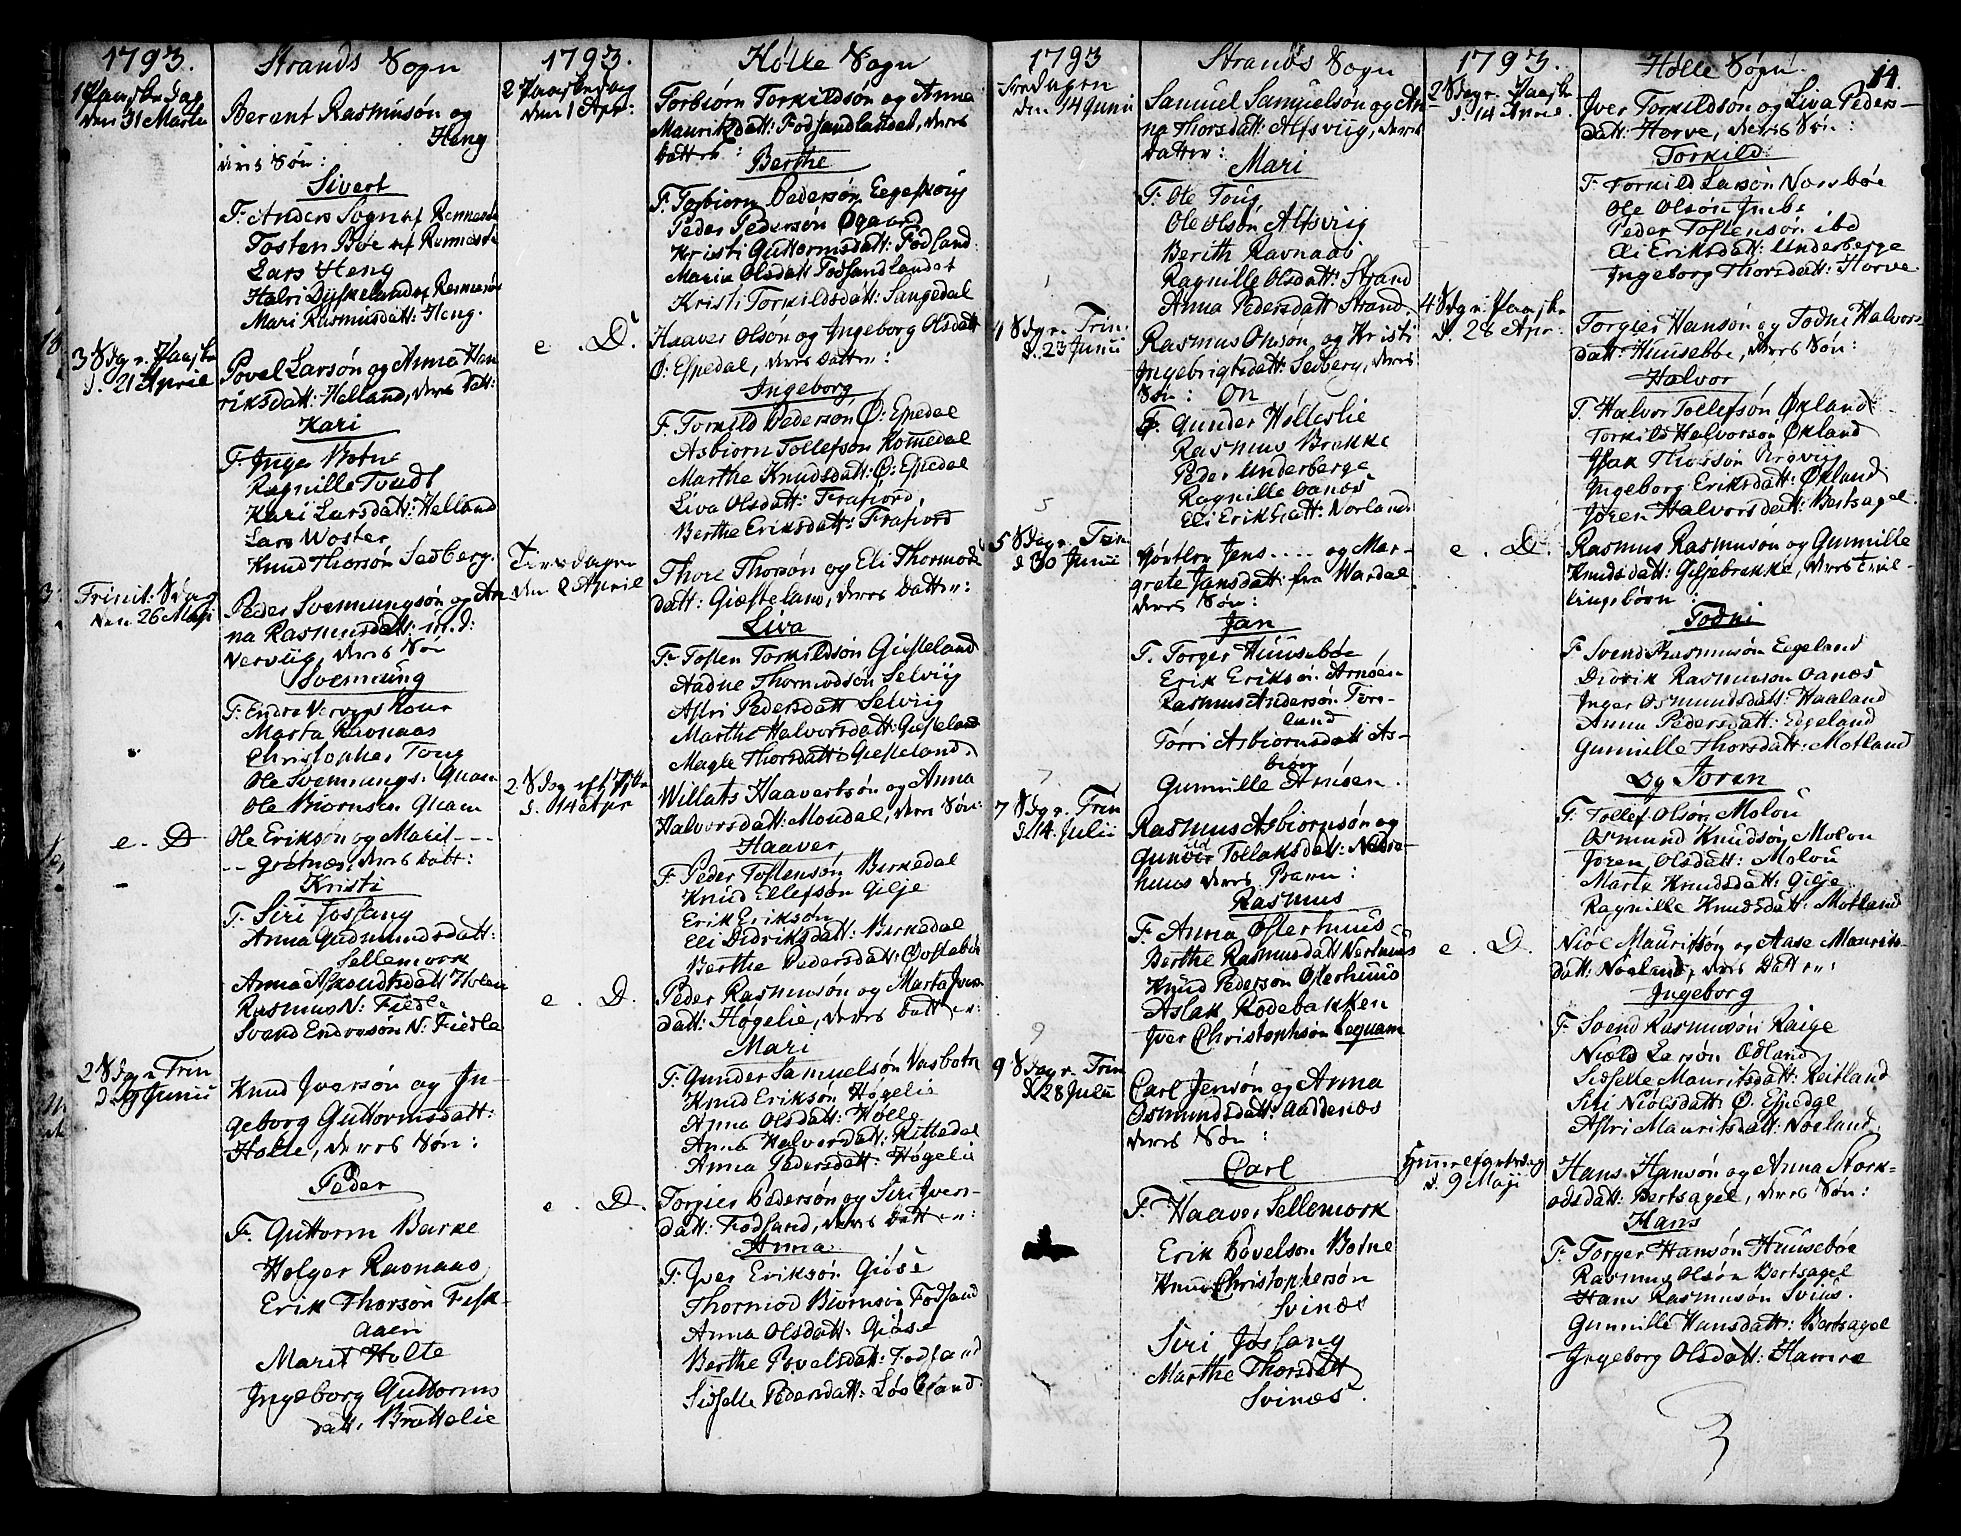 1793.
Strands Sogn
1 Paaske Dag
den 31 Martii
Berent Rasmusøn og
Heng
deres Søn:
Sivert
F. Anders Sognaf Rennesøe
Tosten Bøe af Rennesøe
Lars Heng
Mari Rasmusdatt: Heng.
3 Sdag r. Paaske
d. 21 Aprile
Povel Larsøn og Anna Hen
riksdatt: Helland, deres Datt:
Kari
F. Inge Botne
Ragnille Toudt
Kari Larsdatt: Helland
Lars Woster
Knud Thorsøn Sedberg.
Trinit: Sdag
den 26 Maji
Peder Svennungsøn og An
na Rasmusdatt:
Nerviig, deres Søn
Svennung
Marta Ravnaas
Christopher Toug
Ole Svennungs: Quam
Ole Biørnsen Quam
e. D
Ole Eriksøn og Marit - -
- - Grøtnæs, deres Datt:
Kristi
F. Siri Jossang
Anna Gudmundsdatt:
Sellemork
Rasmus N: Fiedle
Svend Endresøn N: Fiedle
2 Sdag r. Trin
d. 9 Junii
Knud Iversøn og In-
geborg Guttormsdatt:
Holte, deres Søn:
Peder
F. Guttorm Barke
Holger Ravnaas
Erik Thorsøn Fisk-
aaen
Marit Holte
Ingeborg Guttorms
datt. Brattelie
1793.
Hølle Sogn
2 Paaskedag
den 1 Apr:
Torbiørn Torkildsøn og Anna
Mauritzdatt: Fodsandlandet, deres
Datter:
Berthe
F. Torbiørn Pedersøn Eegeskoug
Peder Pedersøn Øgaard
Kristi Guttormsdatt: Fodland
Maria Olsdatt: Fodsandlandet
Kristi Torkildsdatt: Sangedal
e. D.
Haaver Olsøn og Ingeborg Olsdatt
Ø: Espedal, deres Datter:
Ingeborg
F. Torkild Pedersøn Ø: Espedal
Asbiørn Tollefsøn Kommedal
Marthe Knudsdatt: Ø: Espedal
Liva Olsdatt: Frafiord.
Berthe Eriksdatt: Frafiord
Tirsdagen
den 2 April
Thore Thorsøn og Eli Thormods
datt: Giesteland, deres Datter:
Liva
F. Tosten Torkildsøn Giesteland
Aadne Thormodsøn Selviig
Astri Pedersdatt Selviig
Marthe Halvorsdatt: Giesteland
Magle Thorsdatt: Giesteland.
2 Sdag eft. Paaske
d. 14 Apr
Willats Haavertsøn og Anna
Halvorsdatt: Moudal, deres Søn:
Haaver
F. Peder Tostensøn Birkedal
Knud Ellefsøn Gilje
Erik Eriksøn
Eli Didriksdatt: Birkedal
Berthe Pedersdatt:
e. D.
Peder Rasmusøn og Marta Ivers
datt: Høgelie, deres Datter:
Mari
F. Gunder Samuelsøn Vasbotn
Knud Eriksøn Høgelie
Anna Olsdatt: Hølle
Anna Halvordatt: Rettedal
Anna Pedersdatt: Høgelie
e. D.
Torgier Pedersøn og Siri Ivers-
datt: Fodsand, deres Datter:
Anna
F. Iver Eriksøn Giøse
Thormod Biørnsøn Fodsand
Anna Olsdatt: Giøse
Berthe Povelsdatt: Fodsand
Sidselle Pedersdatt: Løsland
1793
Strands Sogn
Søndagen
den 14 Junii
Samuel Samuelsøn og An
na Thorsdatt: Alfsviig, deres
Datter:
Mari
F. Ole Toug
Ole Olsøn Alfsviig
Berith Ravnaas
Ragnille Olsdatt: Strand
Anna Pedersdatt Strand.
4 Sdag r. Trin.
d. 23 Junii
Rasmus Onsøn og Kristi
Ingebrigtsdatt: Sedberg, deres
Søn: On
F. Gunder Hølleslie
Rasmus Brekke
Peder Underberge
Ragnille Oanæs
Eli Eriksdatt: Norland
5 Sdag r. Trin
d 30 Junii
Jens .... og Mar-
grete Jansdatt: fra Wardal
deres Søn:
Jan
F. Torger Huusebøe
Erik Eriksøn Arnøen
Rasmus Andersøn Tore-
land
Torri Asbiørnsdatt As-
Gunnille Arnøen.
7 Sdag r. Trin
d. 14 Julii
Rasmus Asbiørnsøn og
Gunver Tollaksdatt: Nedre-
huus deres Barn:
Rasmus
F. Anna Østerhuus
Berthe Rasmusdatt Nerhuus
Knud Pedersøn Østerhuus
Aslak Rødebakken
Iver Christophsøn Leqvam
9 Sdag r. Trin
d. 28 Julii
Carl Jensøn og Anna
Osmundsdatt: Addenæs
deres Søn:
Carl
F. Haaver Sellemork
Erik Povelsøn Botne
Knud Christophersøn
Svinæs
Siri Jøssang
Marthe Thorsdatt
Svinæs.
1793.
Hølle Sogn
14.
2 Sdag r. Paaske
d. 14 Aprie.
Iver Torkildsøn og Liva Peders-
datt: Horve, deres Søn:
Torkild
F. Torkild Larsøn Norebøe
Ole Olsøn Imbs
Peder Tostensøn ibd
Eli Eriksdatt: Underberge
Ingeborg Thorsdatt: Horve.
4 Sdag r. Paaske
d. 28 Apr:
Torgier Hansøn og Todni Halvors-
datt: Huusebøe, deres Søn:
Halvor
F. Halvor Tollefsøn Økland
Torkild Halvorsøn Økland
Isak Thorsøn
Ingeborg Eriksdatt: Økland
Jøren Halvorsdatt: Bertsagel.
e. D.
Rasmus Rasmusøn og Gunnille
Knudsdatt: Giljebrekke, deres Tvil-
lingebørn:
Todni
F. Svend Rasmusøn Eegeland
Didrik Rasmuson Oanæs
Inger Osmundsdatt: Haaland
Anna Pedersdatt: Eegeland
Gunnille Thorsdatt: Motland
Og Jøren
F. Tollef Olsøn Molou
Osmund Knudsøn Molou
Jøren Olsdatt: Molou
Marte Knudsdatt: Gilje
Ragnille Knudsdatt: Motland
e. D.
Niøl Mauritsøn og Aase Maurits-
datt: Nøeland, deres Datter:
Ingeborg
F. Svend Rasmusøn Raige
Niæld Larsøn Ødland
Sidselle Mauritsdatt: Reitland
Siri Niølsdatt: Ø. Espedal
Astri Mauritsdatt: Nøeland.
Himelfartsdag
d. 9 Maji
Hans Hansøn og Anna Stork-
odsdatt: Bertsagel, deres Søn:
Hans
F. Torger Hansøn Huusebøe
Rasmus Olsøn Bertsagel
Hans Rasmusøn Sviis.
Gunnille Hansdatt: Bertsagel
Ingeborg Olsdatt: Hamre